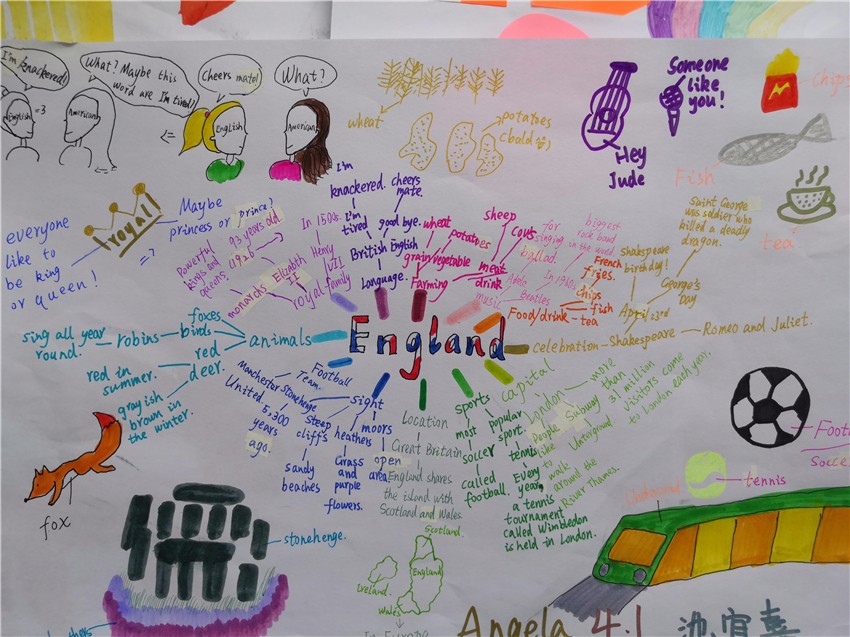 I'm knackered!
What? Maybe this
word are I'm tired!
Cheers mate!
What?
English
American
English
American
wheat
potatoes
(bald
Hey
Jude
Someone
like
you!
chips
Fish
tea
royal!
everyone
like to
be king
or queen!
Maybe
princess or prince?
=?
Powerful
kings and
queens.
monarchs
93 years old
1926
Elizabth
II
In 1500s
Henry
VII.
royal family
I'm
knackered.
I'm
tired
cheers
mate.
good bye.
British English
Language.
wheat
potatoes
grain
vegetable
Farming
sheep
cows
meat
drink
for
singing
ballad.
Adele
music
biggest
rock band
in the word.
In 1960s
Beatles
French
fries.
chips
fish
Food/drink - tea
Saint George
was soldier who
killed a deadly
dragon.
George's
Day
Shakespeare
birthday!
April 23rd
celebration - Shakespeare
Romeo and Juliet.
England
animals
foxes
birds
robins
sing all year
round.
red
deer.
red in
summer.
grayish
brown in
the winter.
fox
Football
Team.
Manchester
United
sight
Stonehenge
5,300
years
ago.
steep
cliffs
sandy
beaches
heathers
Grass
and
purple
flowers.
moors
open
area
Location
Great Britain
England shares
the island with
Scotland and Wales.
Scotland.
England
Ireland.
Wales
In Europe
sports
most
popular
sport.
soccer
called
football.
tennis
Every
year,
a tennis
tournament
called Wimbledon
is held in London.
capital
London
People
like
to
walk
around the
River Thames.
Subway
Underground
more
than
31 million
visitors come
to London each year.
Football
Soccer
tennis
stonehenge.
Angela 4.1